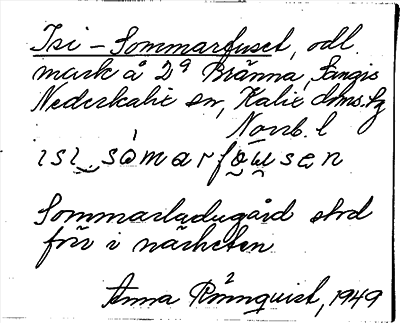 Isi-Sommarfuset, odl.
mark å 2ª Bränna, Sangis
Nederkalix sn, Kalix dms. hg
Norrb. l
isi sòmarfo̬u̬sen
Sommarladugård stod
förr i närheten
Anna Rönnquist, 1949